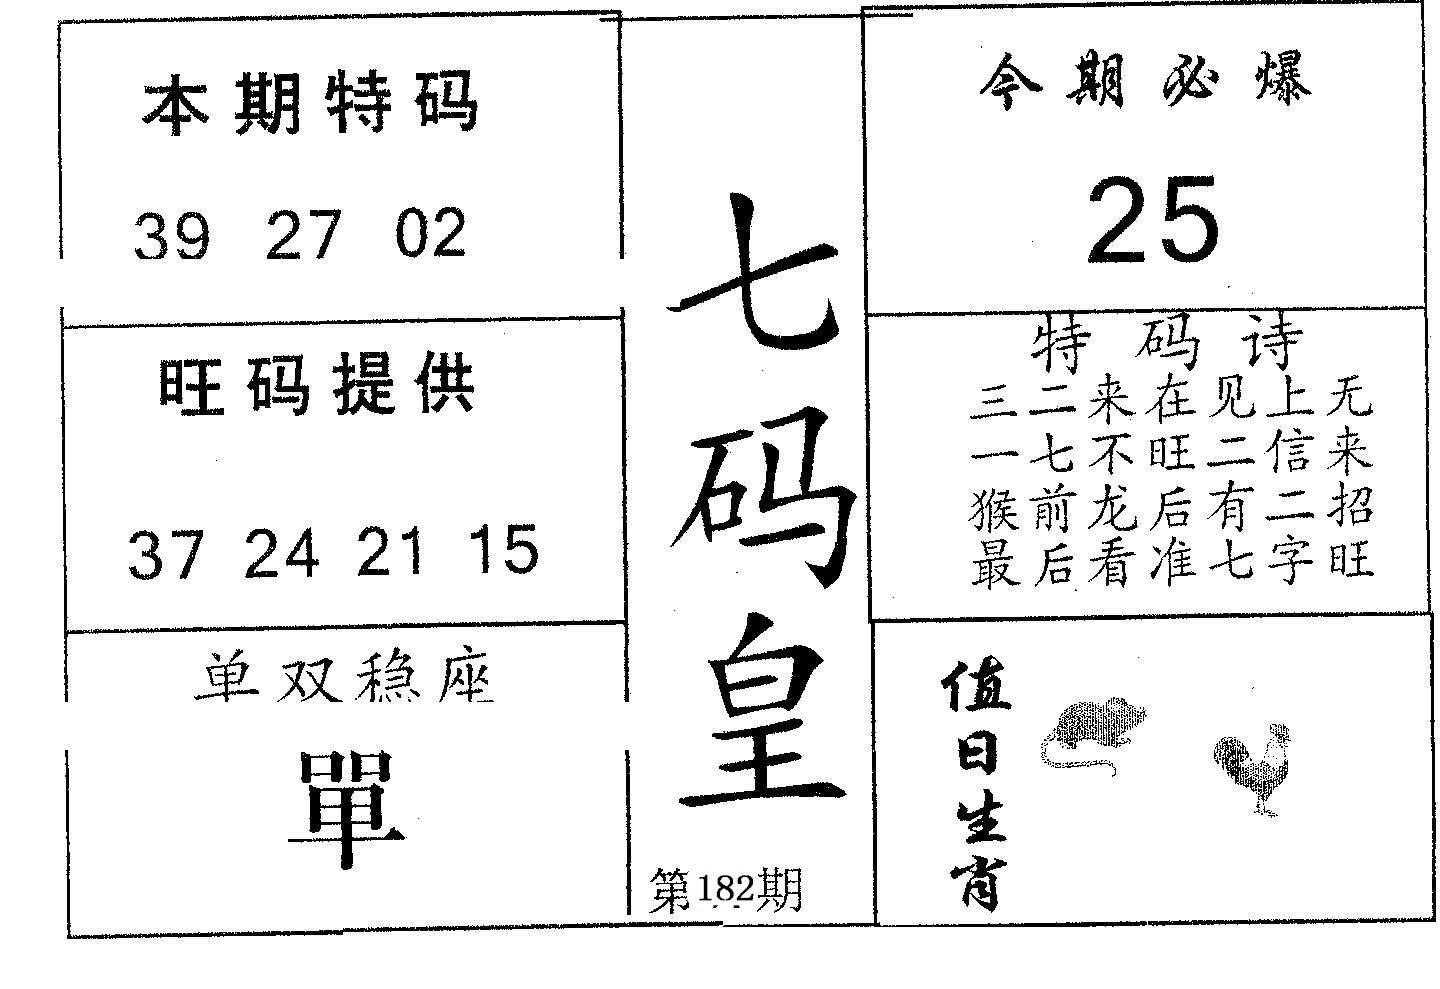 本期特码
39 27 02
旺码提供
37 24 21 15
单双稳座
單
七码皇
第182期
今期必爆
25
特码诗
三二来在见上无
一七不旺二信来
猴前龙后有二招
最后看准七字旺
值日生肖